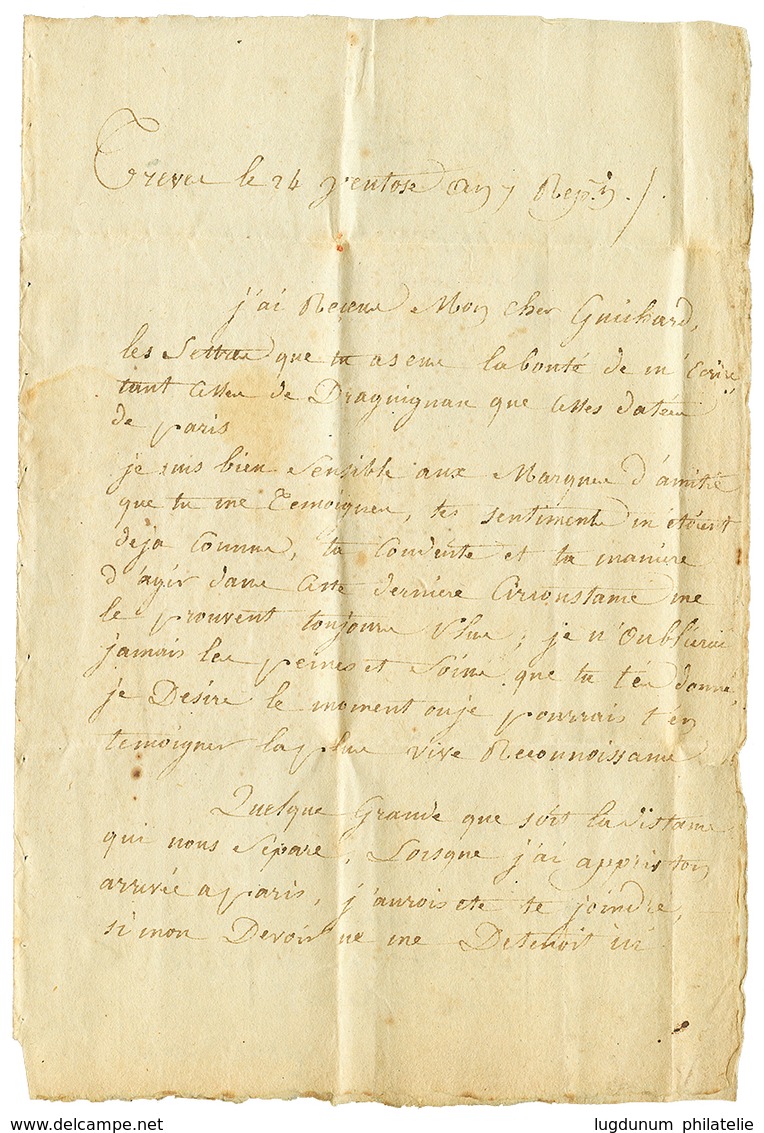 Treves le 24 ventose an 7 Rep.n ./.
j'ai Reçeue Mon cher Guichard,
les Lettres que tu as eue la bonté de m'Ecrire
tant Celles de Draguignan que Celles datées
de paris
je suis bien Sensible aux Marques d'amitié
que tu me Temoignes, tes sentiments m'étoient
deja Connus, ta Conduite et ta maniere
d'agir dans Cette derniere Circonstance me
le prouvent toujours plus; je n'Oublirai
jamais les peines et Soins que tu t'és donné
je Desire le moment ou je pourrais t'en
temoigner la plus vive Reconnoissance
Quelque Grande que soit la distance
qui nous Sépare, Lorsque j'ai appris ton
arrivée a paris, j'aurois eté te joindre,
si mon Devoir ne me Detenoit ici
delcampe.net
lugdunum philatelie